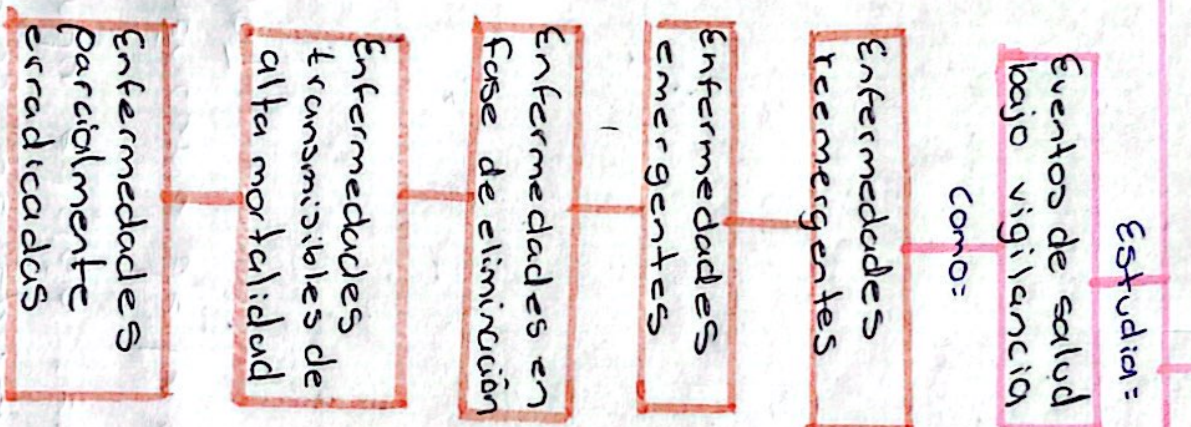 Estudia=
Eventos de salud
bajo vigilancia
como=
Enfermedades
reemergentes
Enfermedades
emergentes
Enfermedades en
fase de eliminación
Enfermedades
transmisibles de
alta mortalidad
Enfermedades
parcialmente
erradicadas